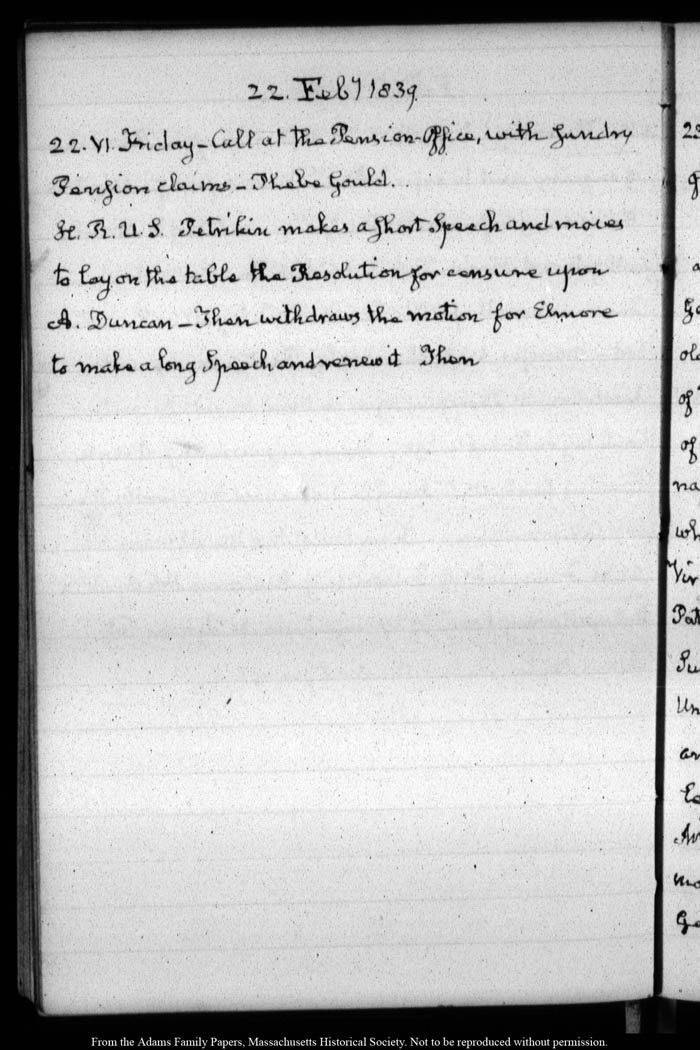 22. Feby 1839.
22. VI. Friday – Call at the Pension-Office, with sundry
Pension claims – Phebe Gould.
H. R. U. S. Petrikin makes a short Speech and moves
to lay on the table the Resolution for censure upon
A. Duncan – Then withdraws the motion for Elmore
to make a long Speech and renew it Then
23
g
a
Ge
old
of
of
na
wh
Vir
Pat
Su
Un
an
Ea
Av
mo
Ge
From the Adams Family Papers, Massachusetts Historical Society. Not to be reproduced without permission.